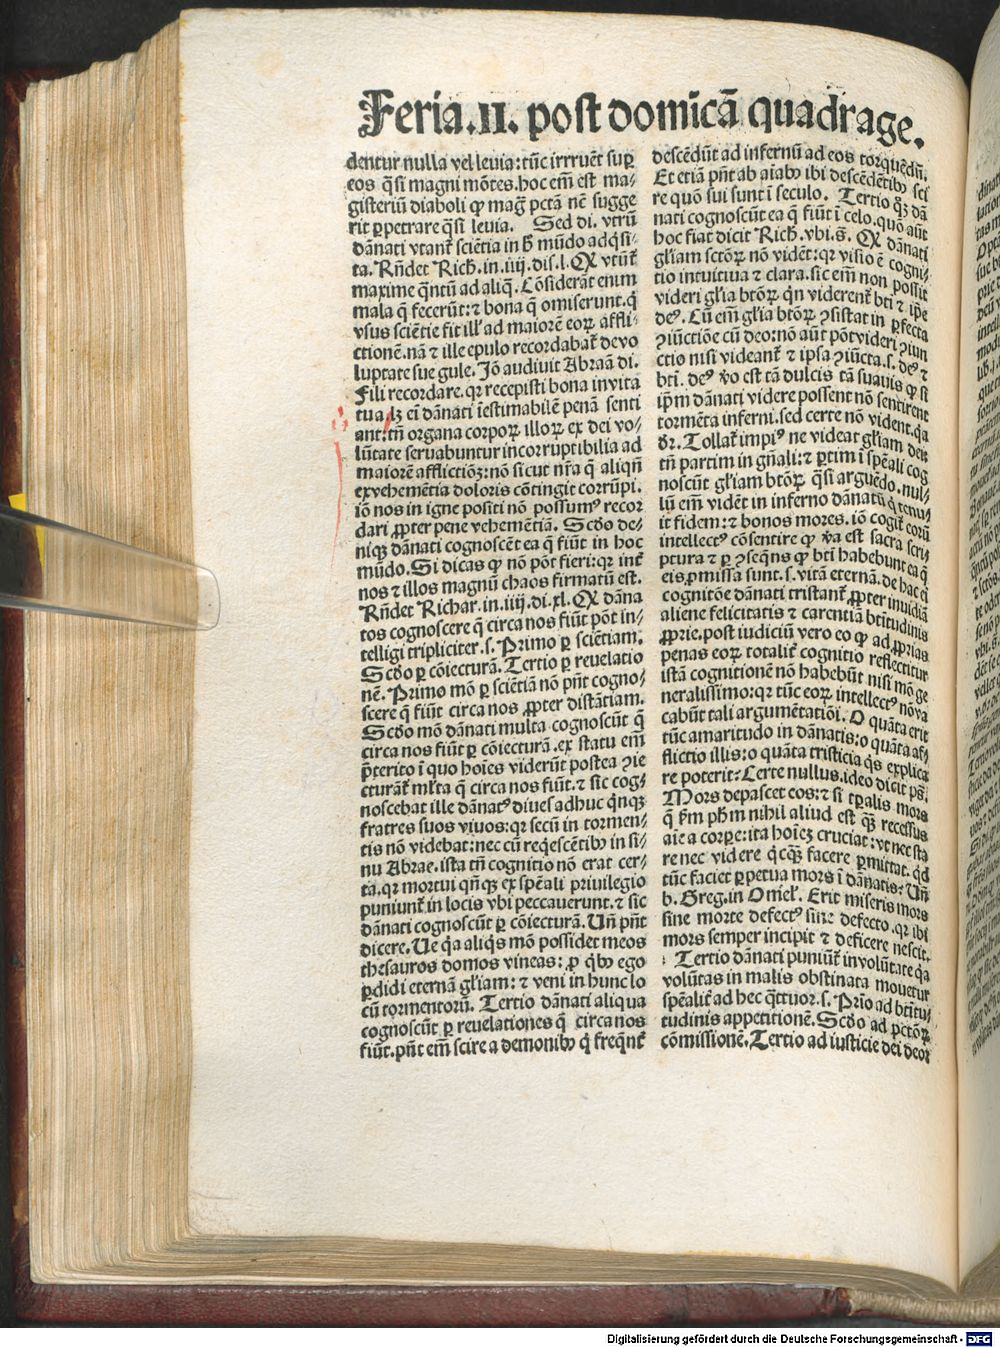 Feria.II. post domĩcã quadrage.
dentur nulla vel leuia: tũc irruẽt suꝑ
eos q̃si magni mõtes. hoc em̃ est ma-
gisteriũ diaboli ꝙ mag̃ pctã nẽ sugge
rit ꝑpetrare q̃si leuia. Sed di. vtrũ
dãnati vtant᷑ sciẽtia in h̃ mũdo adq̃si-
ta. Rñdet Rich̃. in. iiij. dis. l. Ꝙ vtũt᷑
maxime q̃ntũ ad aliq̃. Cõsiderãt enim
mala q̃ fecerũt: ⁊ bona q̃ omiserunt. q̃
vsus sciẽtie fit ill᷑ ad maiorẽ eoꝝ affli-
ctionẽ. nã ⁊ ille epulo recordabat᷑ de vo
luptate sue gule. Jõ audiuit Abraã di.
Fili recordare. qꝛ recepisti bona in vita
tua. lꝫ em̃ dãnati iestimabilẽ penã senti
ant: tñ organa corpoꝝ illoꝝ ex dei vo-
lũtate seruabuntur incorruptibilia ad
maiorẽ afflictiõꝫ: nõ sicut nr̃a q̃ aliqñ
ex vehemẽtia doloris cõtingit corrũpi.
iõ nos in igne positi nõ possumꝰ recor
dari ꝓpter pene vehemẽtiã. Scðo de-
niqꝫ dãnati cognoscẽt ea q̃ fiũt in hoc
mũdo. Si dicas ꝙ nõ põt fieri: qꝛ int᷑
nos ⁊ illos magnũ chaos firmatũ est.
Rñdet Richar. in. iiij. di. xl. Ꝙ dãna
tos cognoscere q̃ circa nos fiũt põt in-
telligi tripliciter. s. Primo ꝑ sciẽtiam.
Scðo ꝑ cõiecturã. Tertio ꝑ reuelatio
nẽ. Primo mõ ꝑ sciẽtiã nõ pñt cogno-
scere q̃ fiũt circa nos ꝓpter distãtiam.
Scðo mõ dãnati multa cognoscũt q̃
circa nos fiũt ꝑ cõiecturã. ex statu em̃
p̃terito ĩ quo hoĩes viderũt postea ꝯie
cturãt᷑ ml̃ta q̃ circa nos fiũt. ⁊ sic cog-
noscebat ille dãnatꝰ diues adhuc q̃nqꝫ
fratres suos viuos: qꝛ secũ in tormen-
tis nõ videbat: nec cũ reqescẽtibꝰ in si-
nu Abrae. ista tñ cognitio nõ erat cer-
ta. qꝛ mortui qñqꝫ ex spẽali priuilegio
puniunt᷑ in locis vbi peccauerunt. ⁊ sic
dãnati cognoscũt ꝑ cõiecturã. Uñ pñt
dicere. Ue q̃a aliq̃s mõ possidet meos
thesauros domos vineas: ꝓ qbꝰ ego
ꝑdidi eternã gl̃iam: ⁊ veni in hunc lo
cũ tormentorũ. Tertio dãnati aliqua
cognoscũt ꝑ reuelationes q̃ circa nos
fiũt. pñt em̃ scire a demonibꝰ q̃ freq̃nt᷑
descẽdũt ad infernũ ad eos torquẽdũ.
Et etiã pñt ab aĩabꝰ ibi descẽdẽtibꝰ sci
re quõ sui sunt ĩ seculo. Tertio qꝫ dã
nati cognoscũt ea q̃ fiũt ĩ celo. quõ aũt
hoc fiat dicit Rich̃. vbi. s̃. Ꝙ dãnati
gl̃iam sctõꝝ nõ vidẽt: qꝛ visio ẽ cogni-
tio intuitiua ⁊ clara. sic em̃ non possit
videri gl̃ia btõꝝ q̃n viderent᷑ bti ⁊ ip̃e
deꝰ. Cũ em̃ gl̃ia btõꝝ ꝯsistat in ꝑfecta
ꝯiũctiõe cũ deo: nõ aũt põt videri ꝯiun
ctio nisi videant᷑ ⁊ ipsa ꝯiũcta. s. deꝰ ⁊
bti. deꝰ ṽo est tã dulcis tã suauis ꝙ si
ip̃m dãnati videre possent nõ sentirent
tormẽta inferni. sed certe nõ vident. q̃a
dꝛ. Tollat᷑ impiꝰ ne videat gl̃iam dei:
tñ partim in gñali: ⁊ ꝑtim ĩ spẽali cog
noscũt gl̃iam btõꝝ q̃si arguẽdo. nul-
lũ em̃ vidẽt in inferno dãnatũ q̃ tenu-
it fidem: ⁊ bonos mores. iõ cogit᷑ eorũ
intellectꝰ cõsentire ꝙ ṽa est sacra scri-
ptura ⁊ ꝑ ꝯseq̃ns ꝙ bti habebunt ea q̃
eis ꝓmissa sunt. s. vitã eternã. de hac ei
cognitõe dãnati tristant᷑. ꝓpter inuidiã
aliene felicitatis ⁊ carentiã btitudinis
ꝓprie. post iudiciũ vero eo ꝙ ad ꝓprias
penas eoꝝ totalit᷑ cognitio reflectitur
istã cognitionẽ nõ habebũt nisi mõ ge
neralissimo: qꝛ tũc eoꝝ intellectꝰ nõ va
cabũt tali argumẽtatiõi. O quãta erit
tũc amaritudo in dãnatis: o quãta af-
flictio illis: o quãta tristicia q̃s explica
re poterit: Certe nullus. ideo dicit pš.
Mors depascet eos: ⁊ si tꝑalis mors
q̃ fm̃ ph̃m nihil aliud est q̃ꝫ recessus
aĩe a corꝑe: ita hoĩeꝫ cruciat: vt nec sta
re nec videre q̃cq̃ꝫ facere ꝑmittat. q̃d
tũc faciet ꝑpetua mors ĩ dãnatis: Uñ
b. Greg. in Omel᷑. Erit miseris mors
sine morte defectꝰ sine defecto. qꝛ ibi
mors semper incipit ⁊ deficere nescit.
Tertio dãnati puniũt᷑ in volũtate q̃a
volũtas in malis obstinata mouetur
spẽalit᷑ ad hec q̃ttuor. s. Prĩo ad btĩtu-
dinis appetitionẽ. Scðo ad pctõꝝ
cõmissionẽ. Tertio ad iusticie dei deor
Digitalisierung gefördert durch die Deutsche Forschungsgemeinschaft - DFG